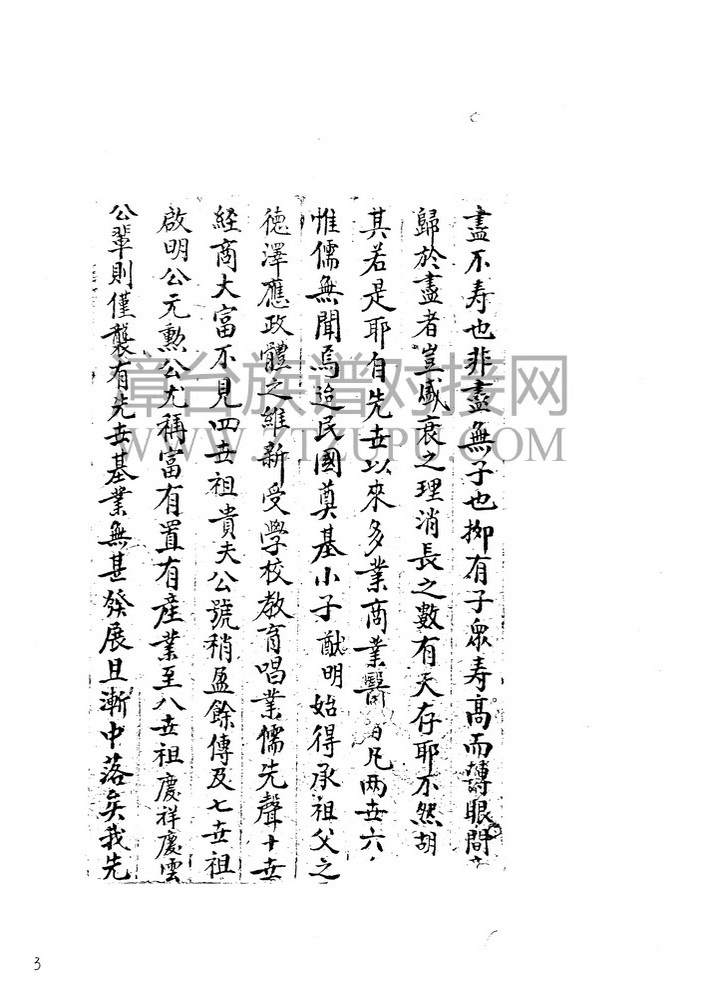 盡不寿也非盡無子也抑有子衆寿高而轉眼間
歸於盡者豈盛衰之理消長之數有天存耶不然胡
其若是耶自先世以來多業商業醫凡兩世六
惟儒無聞焉迨民國奠基小子猷明始得承祖父之
德澤應政體之維新受學校教育唱業儒先聲十世
経商大富不見四世祖貴夫公號稍盈餘傳及七世祖
啟明公元勲公尤稱富有置有産業至八世祖慶祥慶雲
公輩則僅襲有先世基業無甚發展且漸中落矣我先
章台族谱对接网
WWW.ZTZUPU.COM
3